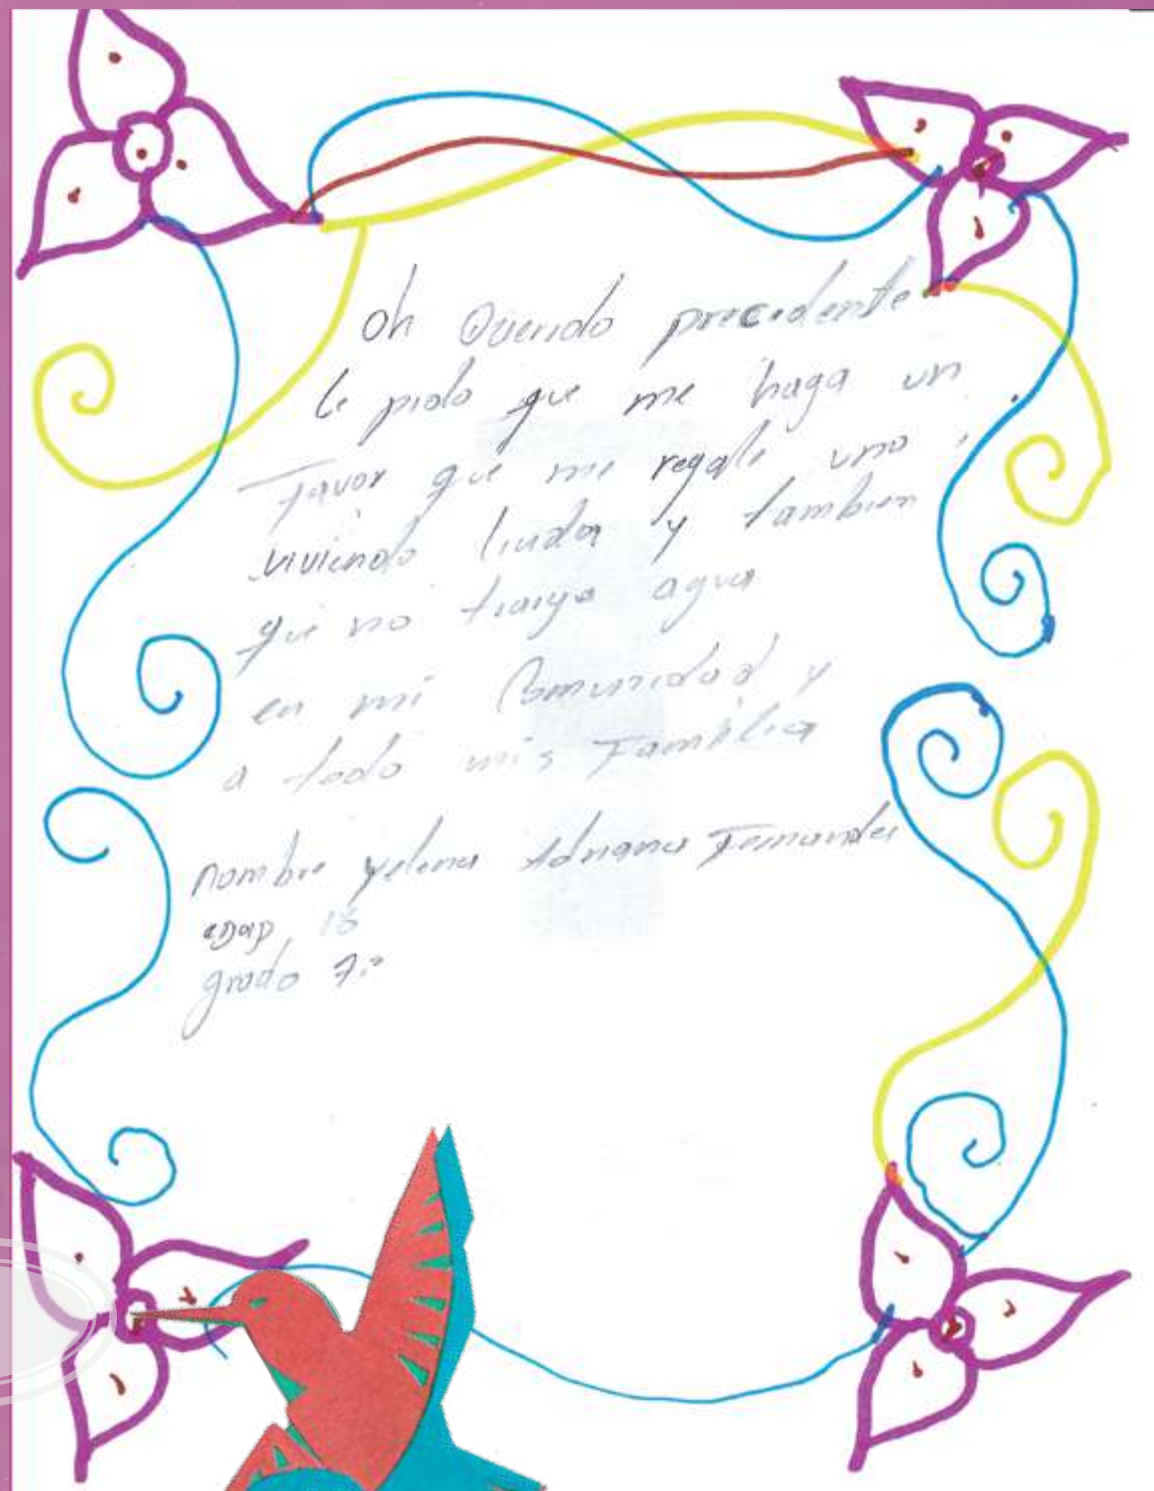 oh Querido precedente
le pido que me haga un
Favor que me regale uno
vivienda linda y tambien
que no traiga agua
en mi Comunidad y
a todo mis Familia
nombre yelena Adriana Fernandez
edad 13
grado 7º